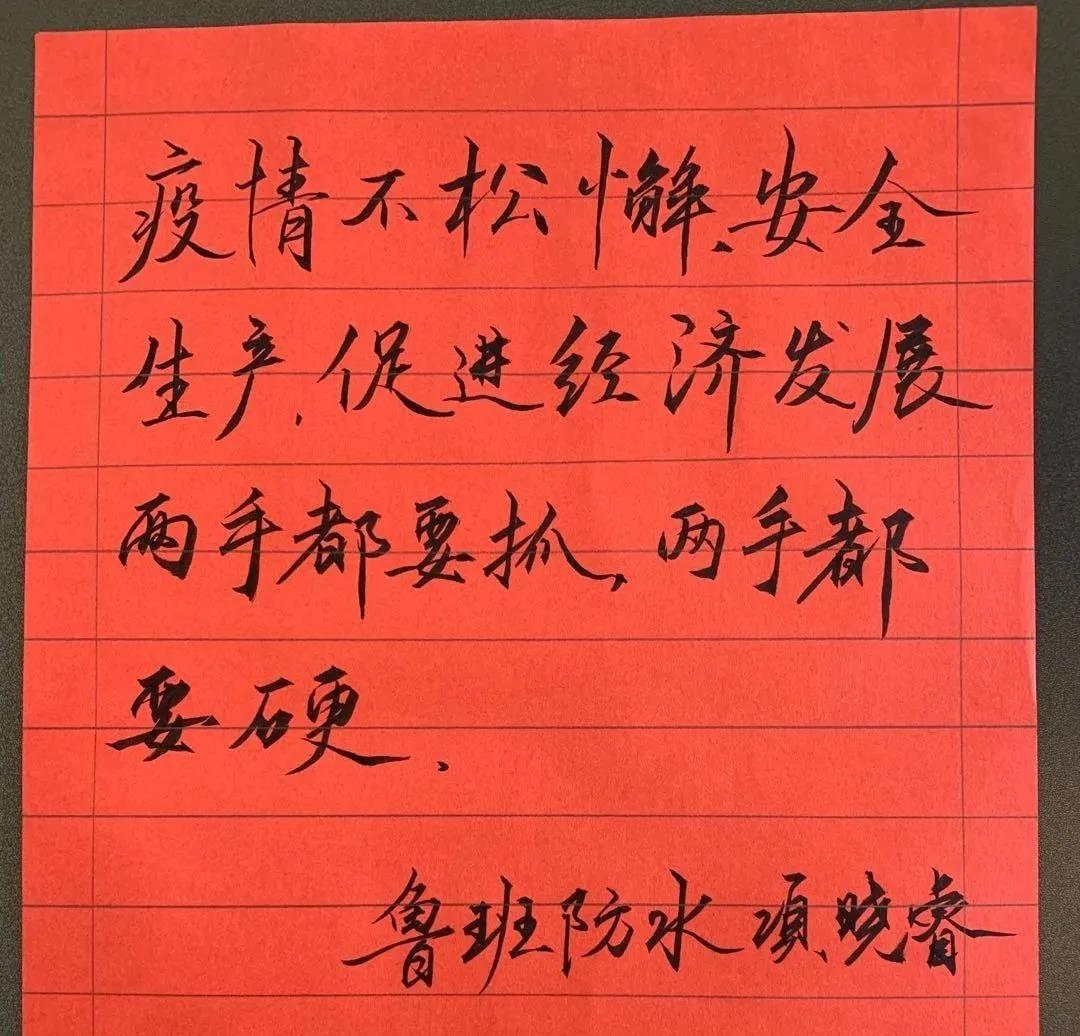 疫情不松懈、安全
生产,促进经济发展
两手都要抓,两手都
要硬.
鲁班防水 項晓睿